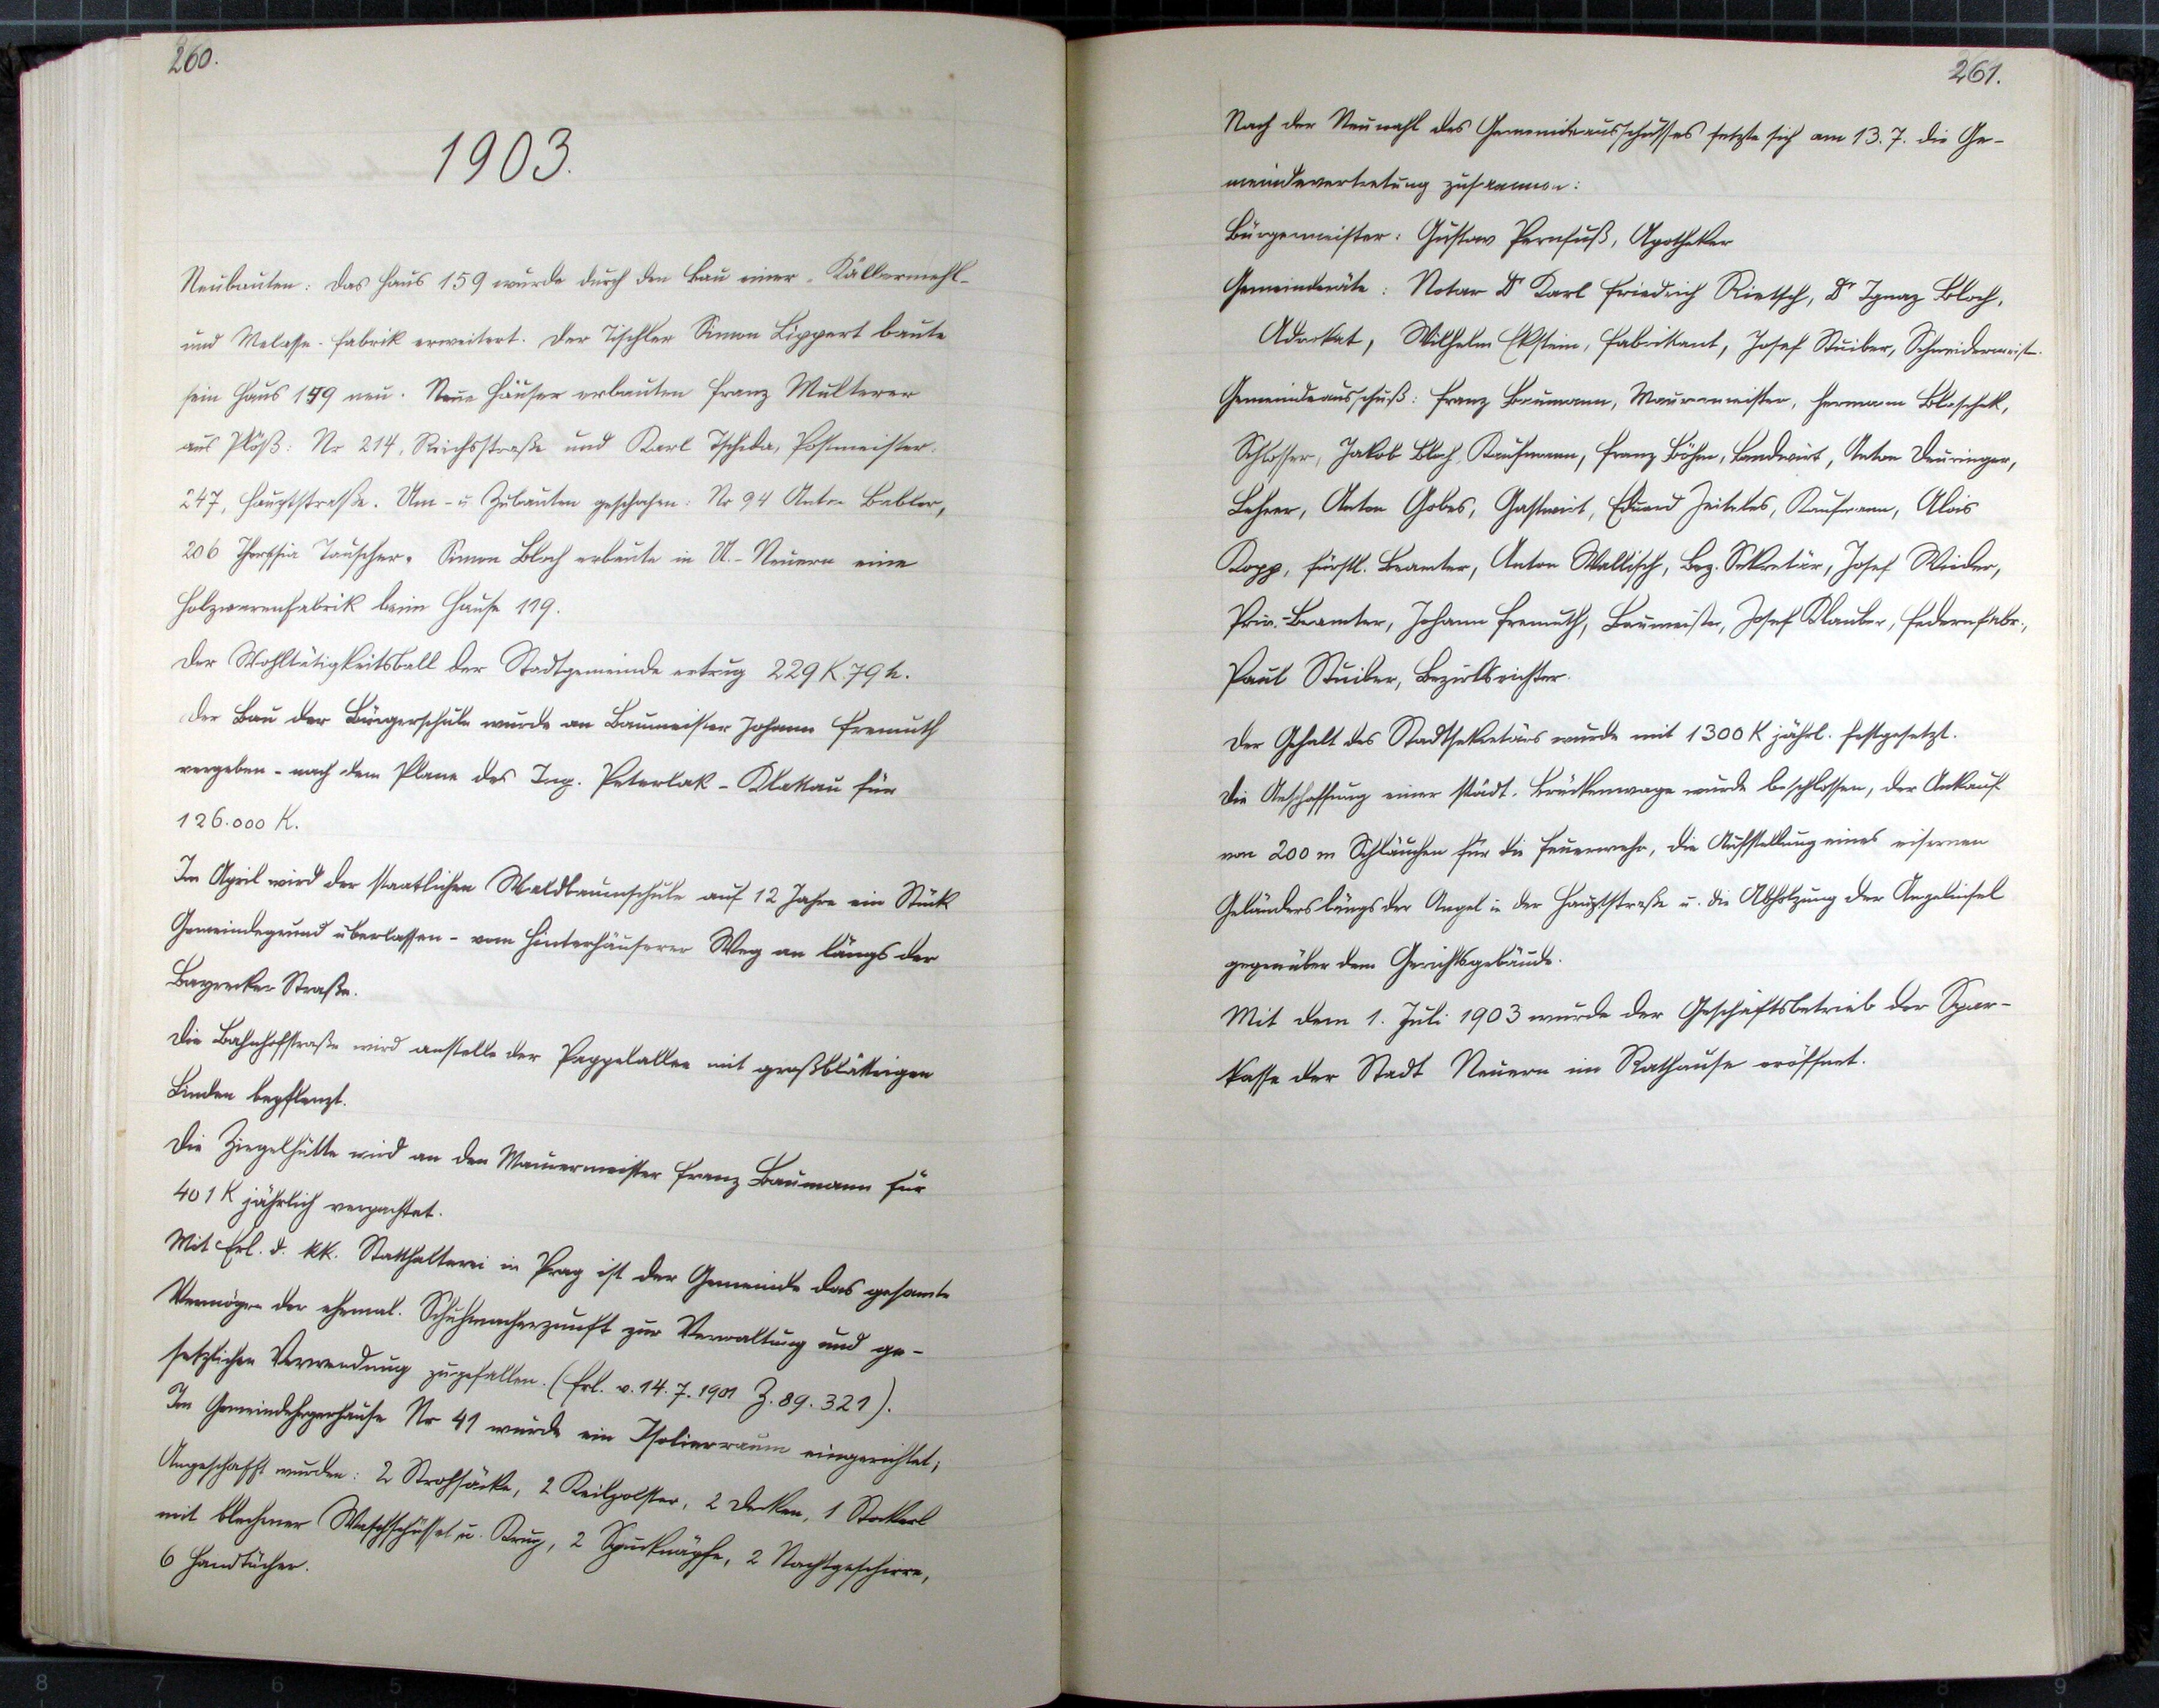 260.
1903.
Neubauten: Das Haus 159 wurde durch den Bau einer Kälbermehl-
und Melasse-Fabrik erweitert. Der Tischler Simon Lippert baute
sein Haus 149 neu. Neue Häuser erbauten Franz Multerer
aus Plöß: Nr 214, Reichsstraße und Karl Tscheda, Postmeister,
247, Hauptstraße. Um- u Zubauten geschahen: Nr 94 Anton Babler,
206 Theresia Tauscher. Simon Bloch erbaute in U.-Neuern eine
Holzwarenfabrik beim Hause 119.
Der Wohltätigkeitsball der Stadtgemeinde ertrug 229 K 79 h.
Der Bau der Bürgerschule wurde an Baumeister Johann Fremuth
vergeben - nach dem Plane des Ing. Peterlak - Klattau für
126.000 K.
Im April wird der staatlichen Waldbaumschule auf 12 Jahre ein Stück
Gemeindegrund überlassen - vom Hinterhäuserer Weg an längs der
Bayrecker Straße.
Die Bahnhofstraße wird anstelle der Pappelallee mit großblättrigen
Linden bepflanzt.
Die Ziegelhütte wird an den Maurermeister Franz Baumann für
401 K jährlich verpachtet.
Mit Erl. d. kk. Statthalterei in Prag ist der Gemeinde das gesamte
Vermögen der ehemal. Schuhmacherzunft zur Verwaltung und ge-
setzlichen Verwendung zugefallen. (Erl. v. 14. 7. 1901 Z. 89. 321).
Im Nr 41 wurde ein Isolierraum eingerichtet;
Angeschafft wurden: 2 Strohsäcke, 2 Keilpolster, 2 Decken, 1 Stockerl
mit blecherner Waschschüssel u. Krug, 2 Spucknäpfe, 2 Nachtgeschirre,
6 Handtücher.
261.
Nach der Neuwahl des Gemeindeausschusses setzte sich am 13. 7. die Ge-
meindevertretung zusammen:
Bürgermeister: Gustav Pernfuß, Apotheker
Gemeinderäte: Notar Dr Karl Friedrich Rietsch, Dr Ignaz Bloch,
Advokat, Wilhelm Ekstein, Fabrikant, Josef Stuiber, Schneidermeist.
Gemeindeausschuß: Franz Baumann, Maurermeister, Hermann Blaschek,
Schlosser, Jakob Bloch, Kaufmann, Franz Böhm, Landwirt, Anton Deuringer,
Lehrer, Anton Gobes, Gastwirt, Eduard Zeiteles, Kaufmann, Alois
Kopp, fürstl. Beamter, Anton Wallisch, Bez. Sekretär, Josef Wieder,
Priv.-Beamter, Johann Fremuth, Baumeister, Josef Klauber, Federnfabr.,
Paul Stuiber, Bezirksrichter.
Der Gehalt des Stadtsekretärs wurde mit 1300 K jährl. festgesetzt.
Die Anschaffung einer städt. Brückenwage wurde beschlossen, der Ankauf
von 200 m Schläuchen für die Feuerwehr, die Aufstellung eines eisernen
Geländers längs der Angel in der Hauptstraße u. die Abholzung der Angelinsel
gegenüber dem Gerichtsgebäude.
Mit dem 1. Juli 1903 wurde der Geschäftsbetrieb der Spar-
kasse der Stadt Neuern im Rathause eröffnet.